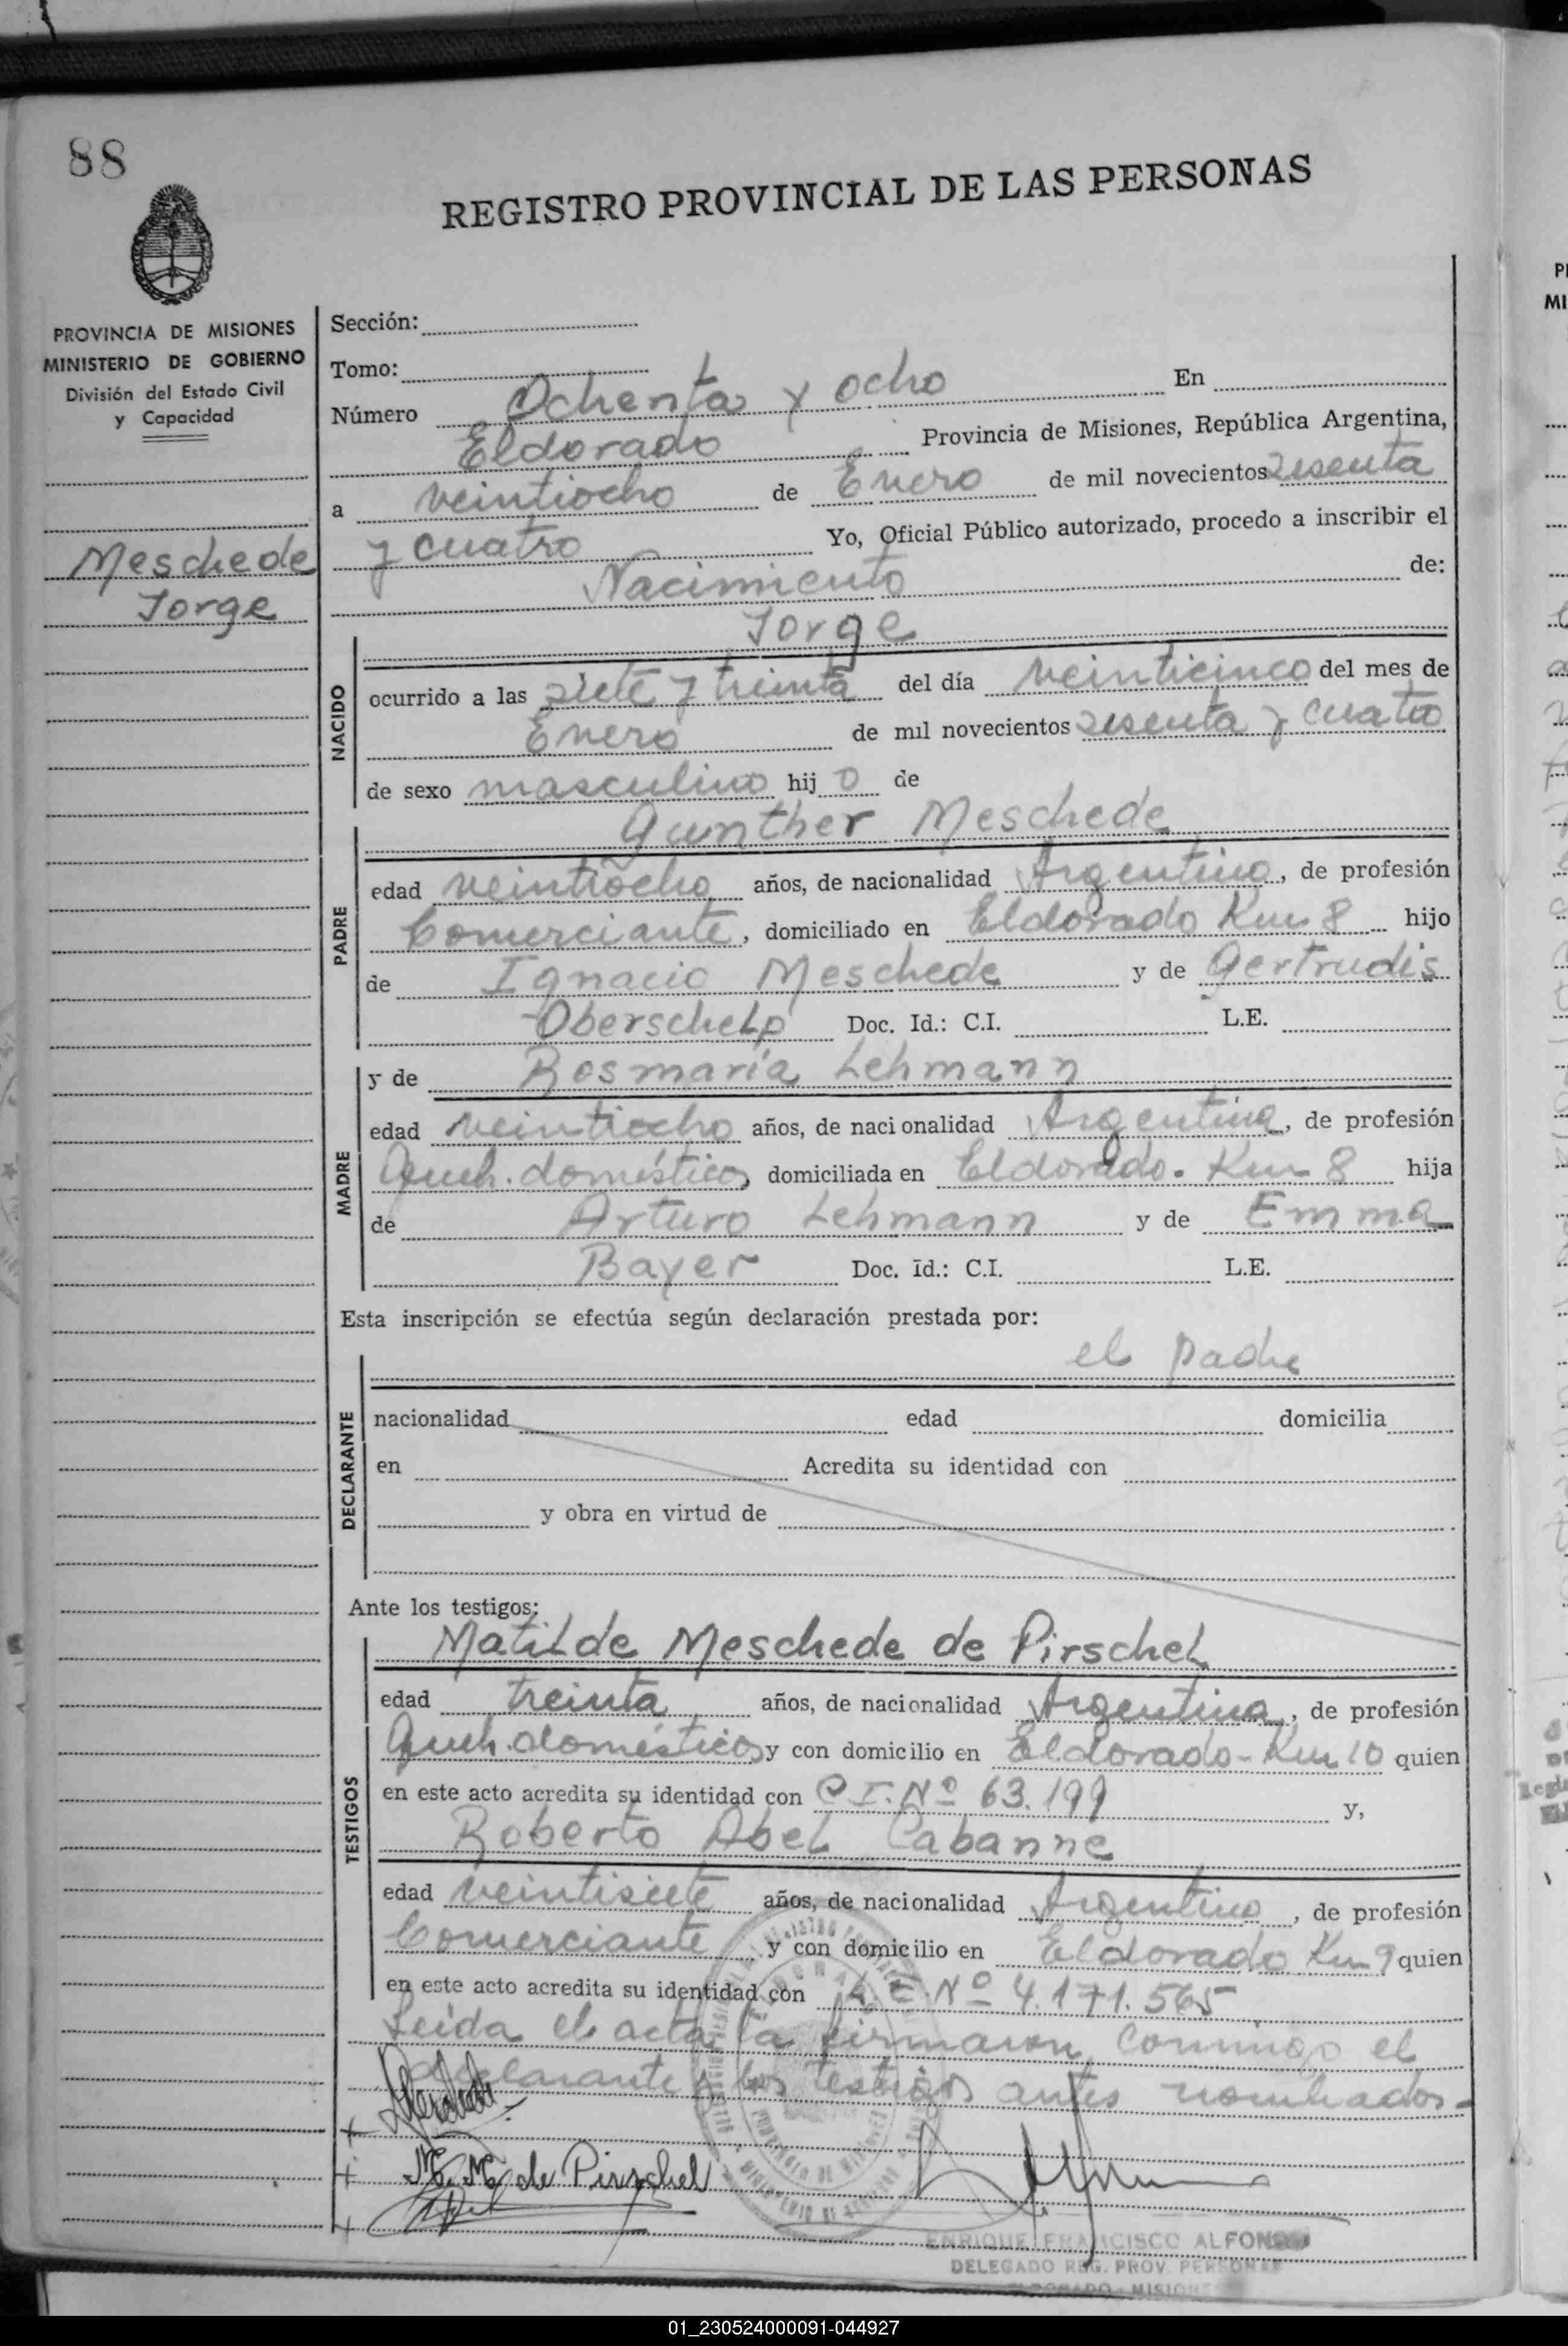 88
REGISTRO PROVINCIAL DE LAS PERSONAS
PROVINCIA DE MISIONES
MINISTERIO DE GOBIERNO
División del Estado Civil
y Capacidad
Meschede
Jorge
Sección:
Tomo:
Número Ochenta y ocho En
Eldorado Provincia de Misiones, República Argentina,
a veintiocho de Enero de mil novecientos sesenta
y cuatro Yo, Oficial Público autorizado, procedo a inscribir el
Nacimiento de:
Jorge
NACIDO
ocurrido a las siete y treinta del día veinticinco del mes de
Enero de mil novecientos sesenta y cuatro
de sexo masculino hij o de
Gunther Meschede
PADRE
edad veintiocho años, de nacionalidad Argentino, de profesión
Comerciante, domiciliado en Eldorado Km 8 hijo
de Ignacio Meschede y de Gertrudis
Oberschelp Doc. Id.: C.I. L.E.
y de Rosmaría Lehmann
MADRE
edad veintiocho años, de nacionalidad Argentina, de profesión
Queh. domésticos domiciliada en Eldorado. Km 8 hija
de Arturo Lehmann y de Emma
Bayer Doc. Id.: C.I. L.E.
Esta inscripción se efectúa según declaración prestada por:
el padre
DECLARANTE
nacionalidad edad domicilia
en Acredita su identidad con
y obra en virtud de
Ante los testigos:
Matilde Meschede de Pirschel
TESTIGOS
edad treinta años, de nacionalidad Argentina, de profesión
Queh. domésticos y con domicilio en Eldorado-Km 10 quien
en este acto acredita su identidad con C.I. Nº 63.199 y,
Roberto Abel Cabanne
edad veintisiete años, de nacionalidad Argentino, de profesión
Comerciante y con domicilio en Eldorado Km 9 quien
en este acto acredita su identidad con L.E. Nº 4.171.565
Leída el acta la firmaron conmigo el
declarante y los testigos antes nombrados.-
M. M. de Pirschel
ENRIQUE FRANCISCO ALFONSO
DELEGADO REG. PROV. PERSONAS
ELDORADO - MISIONES
01_230524000091-044927